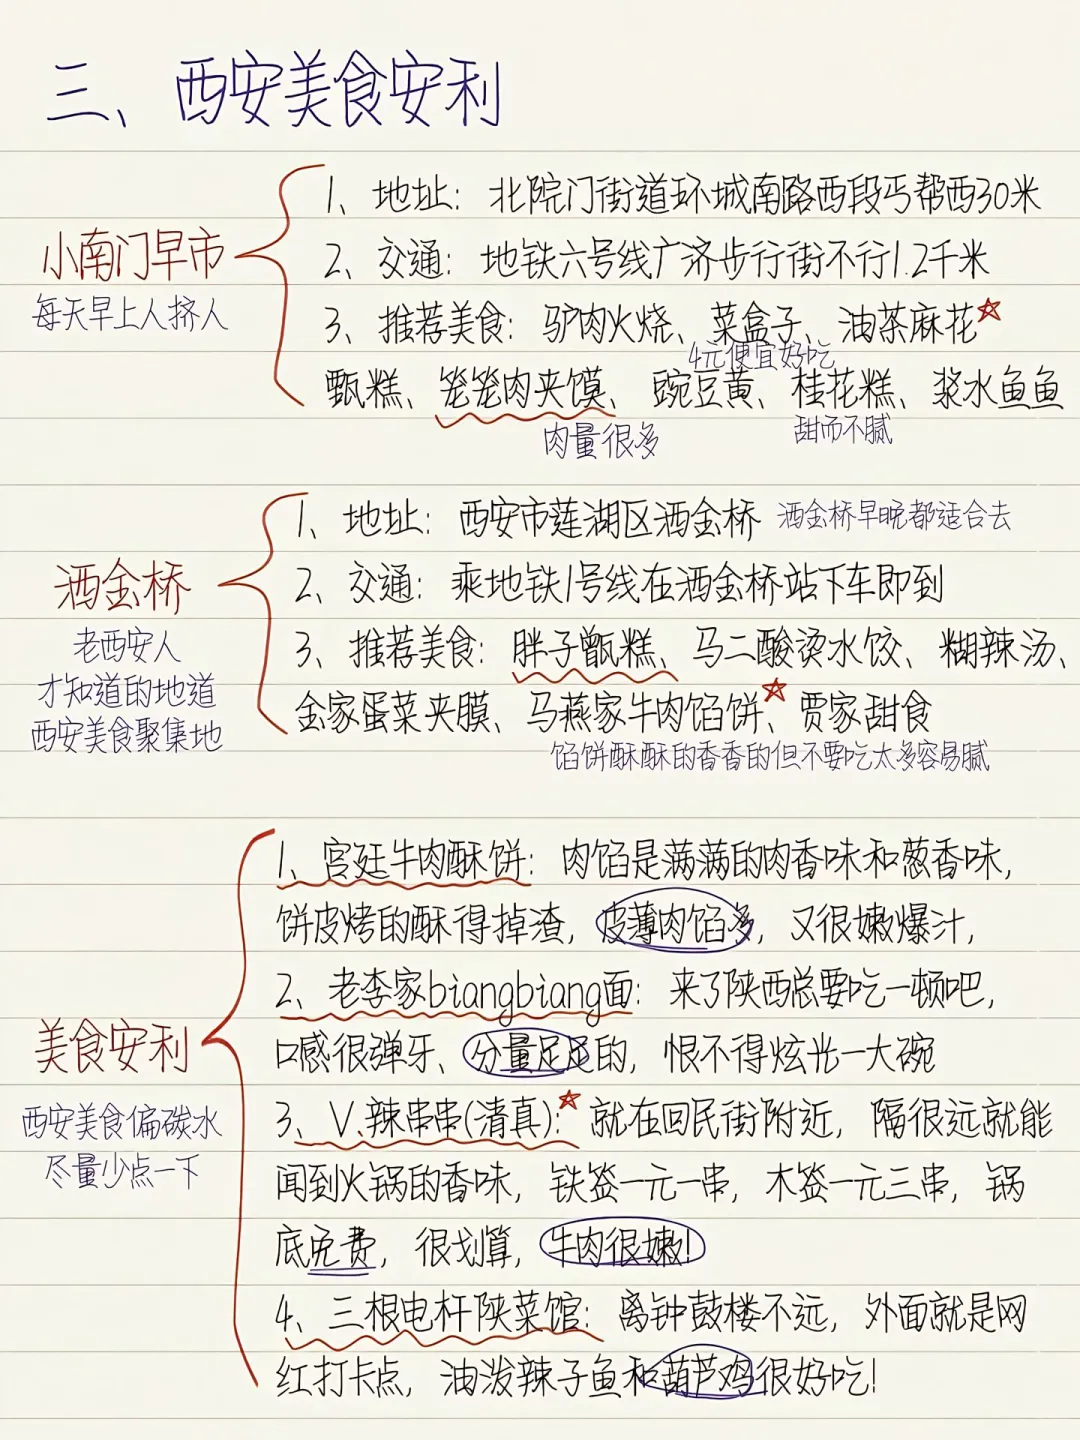 三、西安美食安利
小南门早市
每天早上人挤人
1、地址：北院门街道环城南路西段丐帮西30米
2、交通：地铁六号线广济步行街不行1.2千米
3、推荐美食：驴肉火烧、菜盒子、油茶麻花☆
4元便宜好吃
甄糕、笼笼肉夹馍、豌豆黄、桂花糕、浆水鱼鱼
肉量很多
甜而不腻
洒金桥
老西安人
才知道的地道
西安美食聚集地
1、地址：西安市莲湖区洒金桥 洒金桥早晚都适合去
2、交通：乘地铁1号线在洒金桥站下车即到
3、推荐美食：胖子甑糕、马二酸烫水饺、糊辣汤、
金家蛋菜夹膜、马燕家牛肉馅饼☆、贾家甜食
馅饼酥酥的香香的但不要吃太多容易腻
美食安利
西安美食偏碳水
尽量少点一下
1、宫廷牛肉酥饼：肉馅是满满的肉香味和葱香味，
饼皮烤的酥得掉渣，皮薄肉馅多，又很嫩爆汁，
2、老李家biangbiang面：来了陕西总要吃一顿吧，
口感很弹牙、分量足足的，恨不得炫光一大碗
3、V.辣串串(清真)：☆就在回民街附近，隔很远就能
闻到火锅的香味，铁签一元一串，木签一元三串，锅
底免费，很划算，牛肉很嫩！
4、三根电杆陕菜馆：离钟鼓楼不远，外面就是网
红打卡点，油泼辣子鱼和葫芦鸡很好吃！